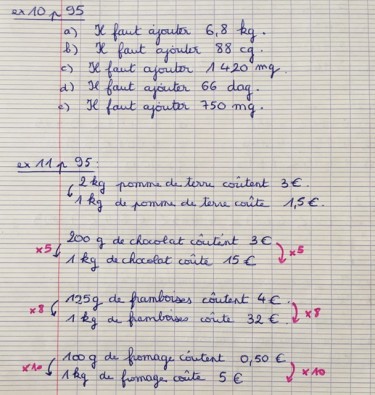 ex 10 p 95
a) Il faut ajouter 6,8 kg.
b) Il faut ajouter 88 cg.
c) Il faut ajouter 1 420 mg.
d) Il faut ajouter 66 dag.
e) Il faut ajouter 750 mg.
ex 11 p 95:
2 kg pomme de terre coûtent 3 €.
1 kg de pomme de terre coûte 1,5 €.
200 g de chocolat coûtent 3 €
x5 x5
1 kg de chocolat coûte 15 €
125 g de framboises coûtent 4 €.
x8 x8
1 kg de framboises coûte 32 €.
100 g de fromage coûtent 0,50 €
x10 x10
1 kg de fromage coûte 5 €